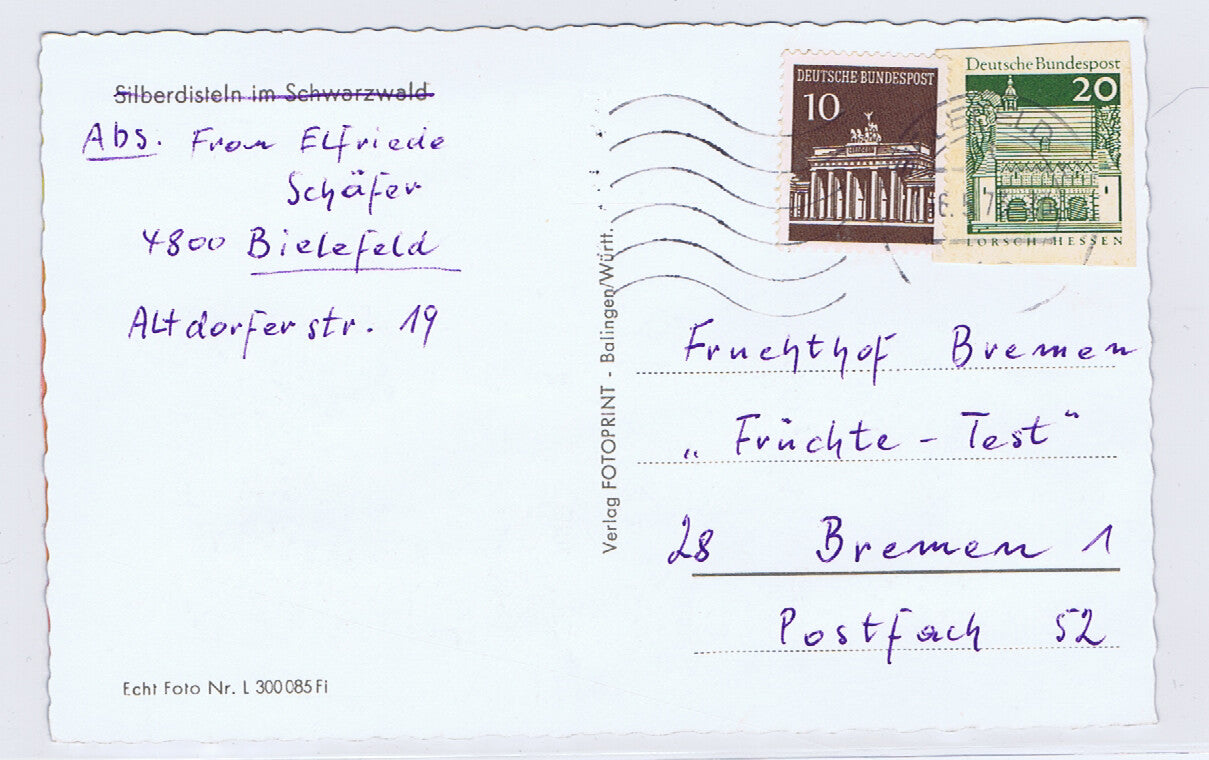 Silberdisteln im Schwarzwald
Abs. Frau Elfriede
Schäfer
4800 Bielefeld
Altdorferstr. 19
Echt Foto Nr. L 300085 Fi
Verlag FOTOPRINT - Balingen/Württ.
DEUTSCHE BUNDESPOST
10
Deutsche Bundespost
20
LORSCH/HESSEN
Fruchthof Bremen
„Früchte - Test"
28 Bremen 1
Postfach 52